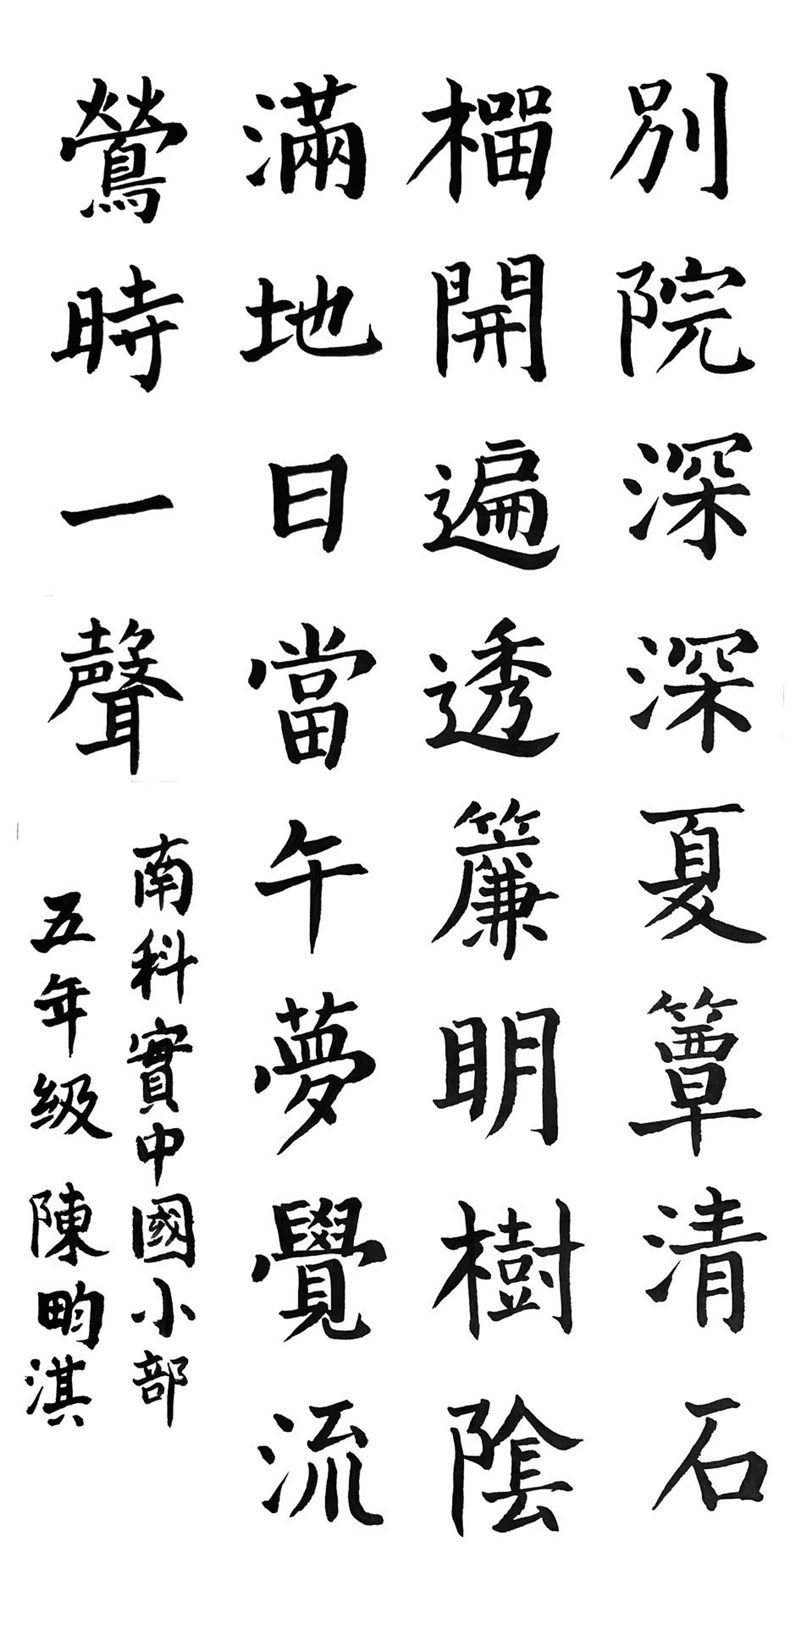 別院深深夏簟清石
榴開遍透簾明樹陰
滿地日當午夢覺流
鶯時一聲
南科實中國小部
五年級 陳畇淇